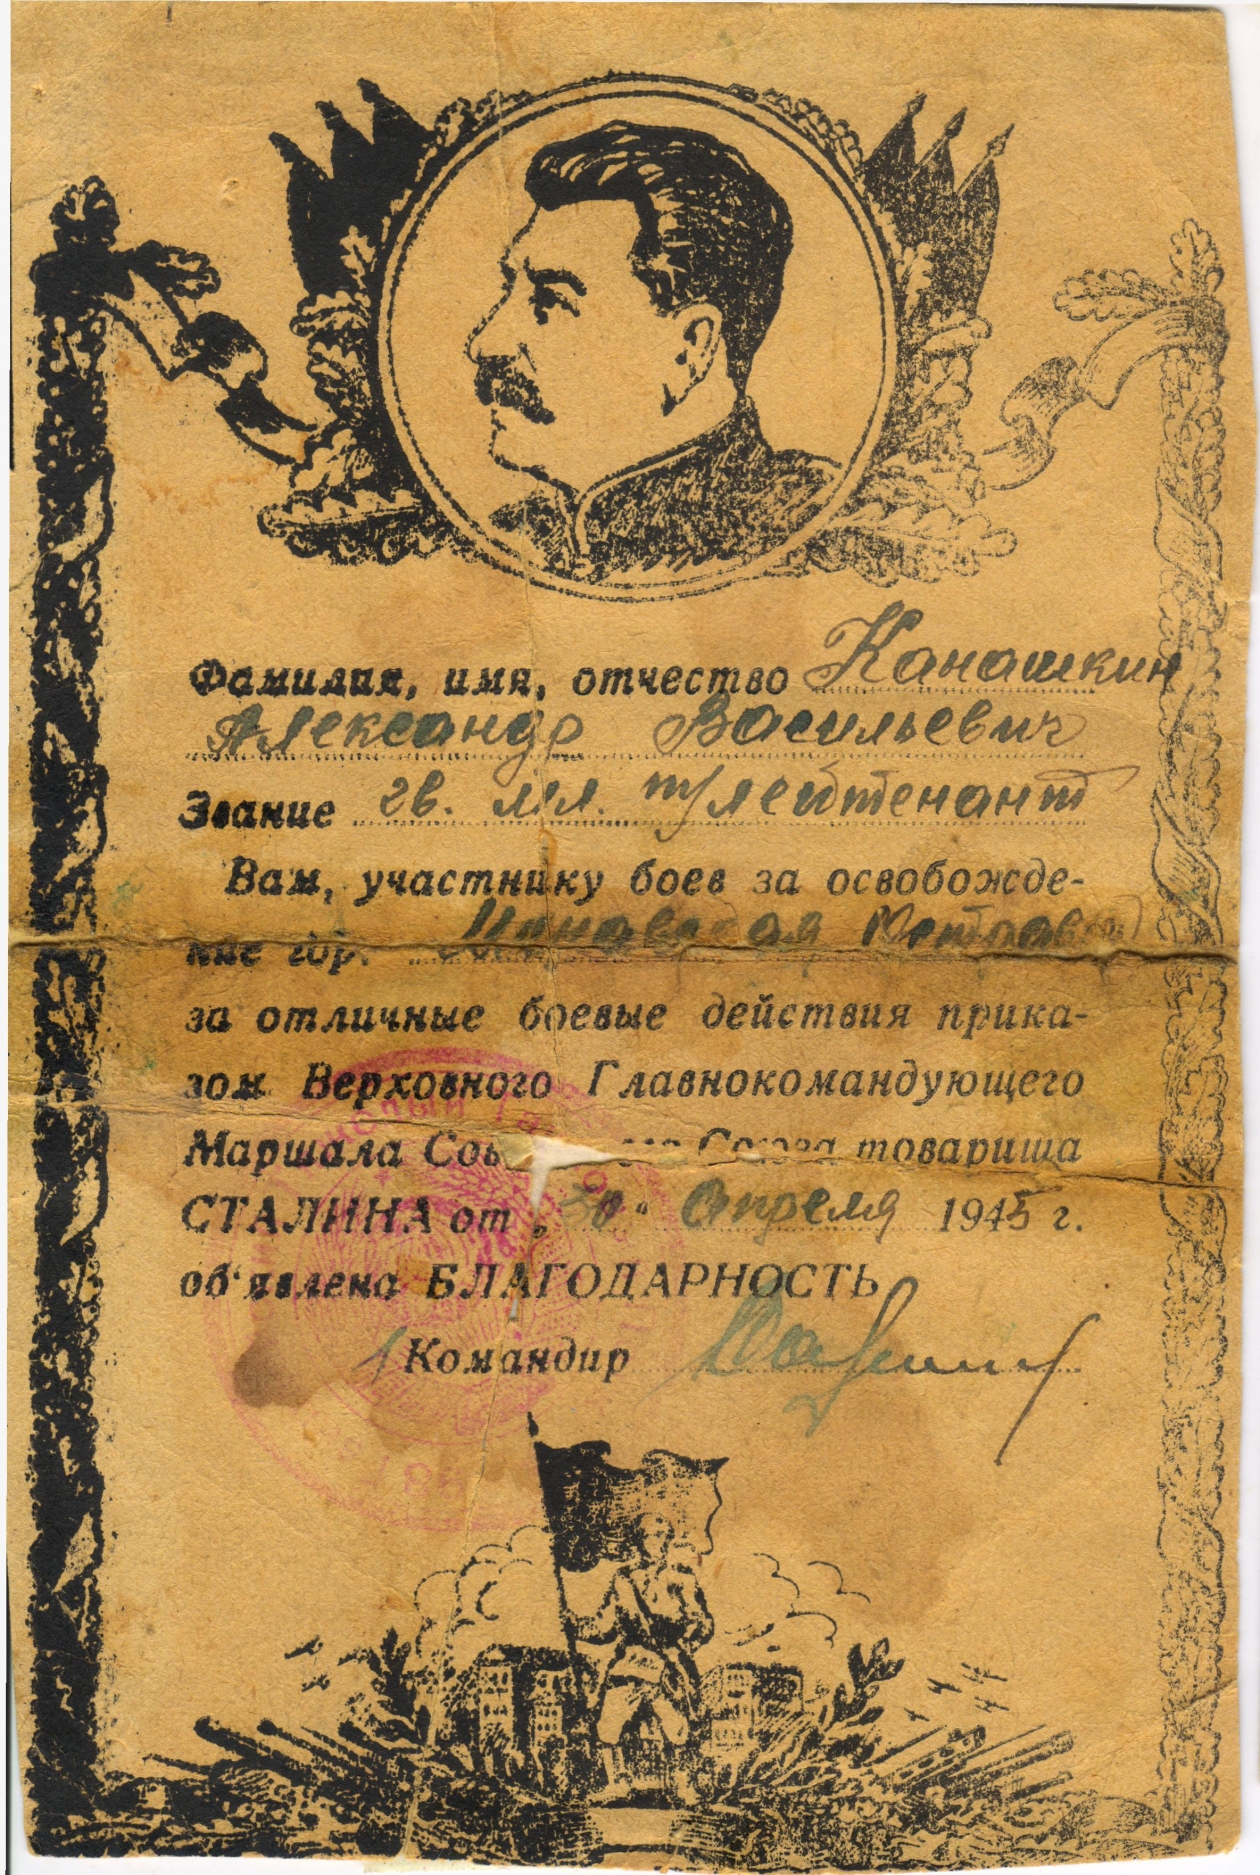 Фамилия, имя, отчество Канашкин
Александр Васильевич
Звание гв. мл. т/лейтенант
Вам, участнику боев за освобожде-
ние гор.
за отличные боевые действия прика-
зом Верховного Главнокомандующего
Маршала Союза товарища
СТАЛИНА от „30" апреля 1945 г.
об'явлена БЛАГОДАРНОСТЬ
Командир